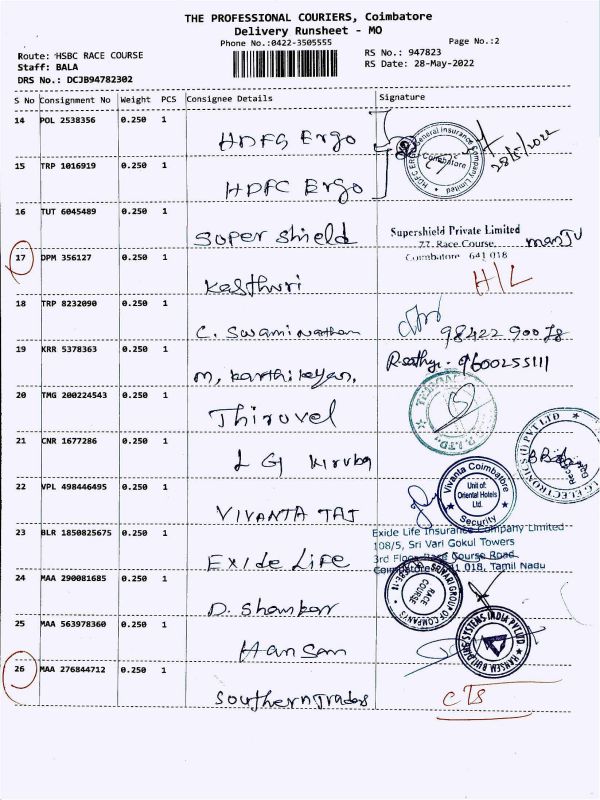 THE PROFESSIONAL COURIERS, Coimbatore
Delivery Runsheet - MO
Phone No.:0422-3505555
Page No.:2
Route: HSBC RACE COURSE
RS No.: 947823
Staff: BALA
RS Date: 28-May-2022
DRS No.: DCJB94782302
S No Consignment No Weight PCS Consignee Details Signature
14 POL 2538356 0.250 1
HDFC Ergo
General Insurance Company Limited
HDFC ERGO
Coimbatore
28/5/2022
15 TRP 1016919 0.250 1
HDFC Ergo
16 TUT 6045489 0.250 1
Super Shield
Supershield Private Limited
77, Race Course,
Coimbatore 641 018
manju
17 DPM 356127 0.250 1
Kasthuri
H/L
18 TRP 8232090 0.250 1
C. Swaminathan
98422 90078
19 KRR 5378363 0.250 1
M. Karthikeyan,
R.sathya - 9600255111
20 TMG 200224543 0.250 1
Thiruvel
21 CNR 1677286 0.250 1
LG Kiruba
ELECTRONICS (I) PVT LTD
22 VPL 498446495 0.250 1
VIVANTA TAJ
Vivanta Coimbatore
Unit of:
Oriental Hotels
Ltd.
Security
23 BLR 1850825675 0.250 1
Exide Life
Exide Life Insurance Company Limited
108/5, Sri Vari Gokul Towers
3rd Floor, Race Course Road
Coimbatore - 641 018, Tamil Nadu
24 MAA 290081685 0.250 1
D. Shankar
GROUP OF COMPANIES
RACE
COURSE
25 MAA 563978360 0.250 1
Hansam
BUILDING SYSTEMS INDIA PVT LTD
26 MAA 276844712 0.250 1
Southern Traders
CTS